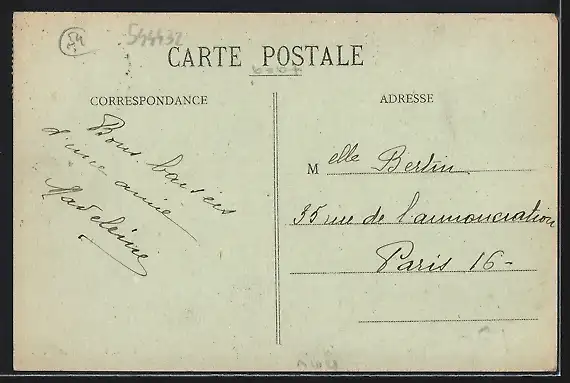 54
544432
CARTE POSTALE
CORRESPONDANCE
ADRESSE
Bons baisers
d'une amie
Madeleine
Melle Bertin
35 rue de l'annonciation
Paris 16-